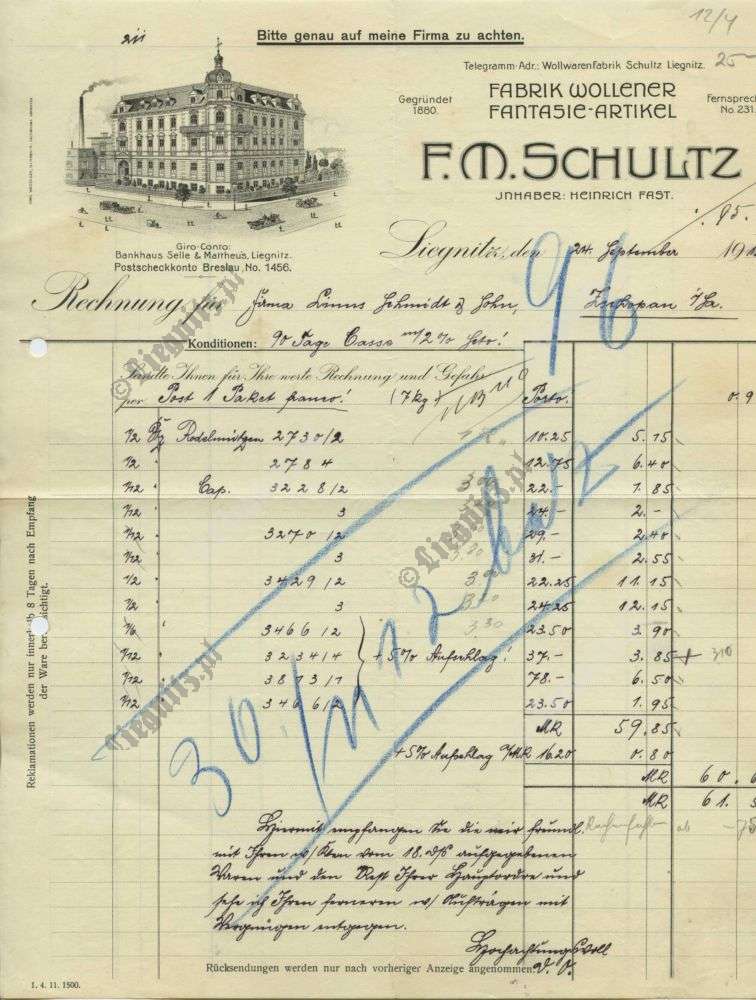 12/4
Bitte genau auf meine Firma zu achten.
Telegramm-Adr.: Wollwarenfabrik Schultz Liegnitz.
25-
Gegründet
1880.
FABRIK WOLLENER
FANTASIE-ARTIKEL
Fernsprech
No. 231.
F. M. SCHULTZ
JNHABER: HEINRICH FAST.
Giro-Conto:
Bankhaus Selle & Mattheus, Liegnitz.
Postscheckkonto Breslau, No. 1456.
Liegnitz, den 24. September 191
96
Rechnung für Firma Schmidt & Sohn, Zschopau i/Sa.
Konditionen: 90 Tage Cassa 2%
Sandte Ihnen für Ihre werte Rechnung und Gefahr
per Post 1 Paket franco! (7 kg) Porto. 0.9
1/2 Dz Rodelmützen 2730/2 10.25 5.15
1/2 " 2784 12.75 6.40
1/12 " Cap. 3228/2 22.- 1.85
1/12 " 3 24.- 2.-
1/12 " 3270/2 29.- 2.40
1/12 " 3 31.- 2.55
1/2 " 3429/2 22.25 11.15
1/2 " 3 24.25 12.15
1/6 " 3466/2 23.50 3.90
1/12 " 3234/4 + 5% Aufschlag! 37.- 3.85
1/12 " 3873/1 78.- 6.50
1/12 " 346 6/2 23.50 1.95
MK 59.85
+ 5% Aufschlag a/MK 16.20 0.80
MK 60. 6
MK 61. 3
30./11 12
Hiermit empfangen Sie die mir freundl.
mit Ihrem w/ vom 18. ds aufgegebenen
Waren und den Rest Ihrer Hauptordre und
sehe ich Ihren ferneren w/ Aufträgen mit
Vergnügen entgegen.
Hochachtungsvoll
Rücksendungen werden nur nach vorheriger Anzeige angenommen.
D. O.
Reklamationen werden nur innerhalb 8 Tagen nach Empfang
der Ware berücksichtigt.
1. 4. 11. 1500.
©Liegnitz.pl
©Liegnitz.pl
Liegnitz.pl